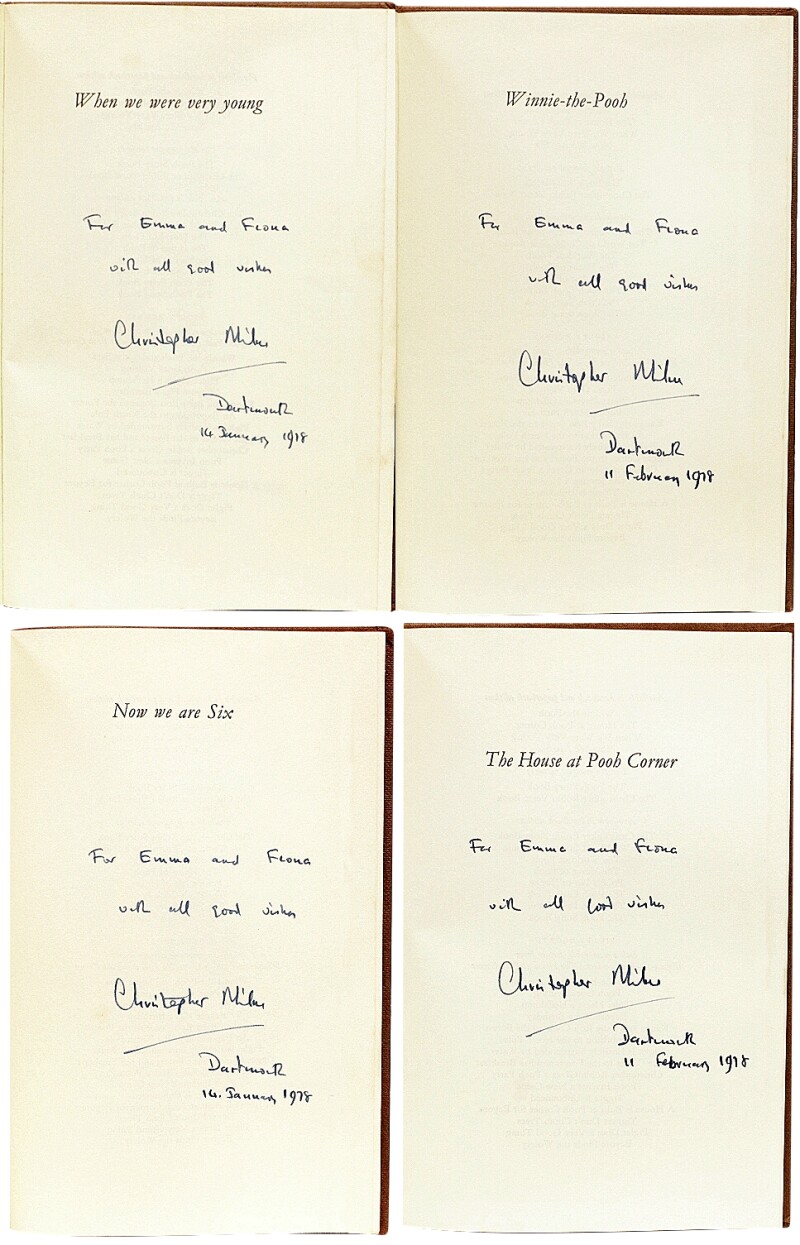 When we were very young
For Emma and Fiona
with all good wishes
Christopher Milne
Dartmouth
14 January 1978
Winnie-the-Pooh
For Emma and Fiona
with all good wishes
Christopher Milne
Dartmouth
11 February 1978
Now we are Six
For Emma and Fiona
with all good wishes
Christopher Milne
Dartmouth
14. January 1978
The House at Pooh Corner
For Emma and Fiona
with all good wishes
Christopher Milne
Dartmouth
11 February 1978